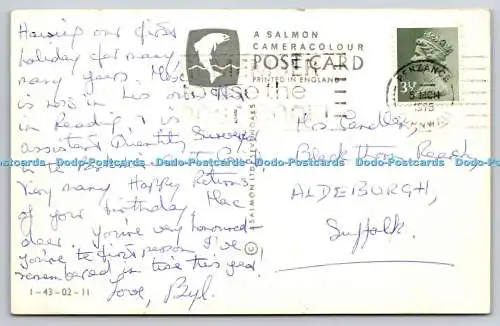 Having our first
holiday for many,
many years. Mac
is now in his own
in Reading & is
assistant Quantity Surveyor
in the
Very many Happy Returns
of your birthday, Mac
dear. You've very honoured -
you're the first person I've
remembered in time this year!
Love, Byl.
1-43-02-11
A SALMON
CAMERACOLOUR
POST CARD
PRINTED IN ENGLAND
©
3½
PENZANCE
1975
CORNWALL
Mrs Candler,
Blackthorn Road,
ALDEBURGH,
Suffolk.
Dodo-Postcards Dodo-Postcards Dodo-Postcards Dodo-Postcards Dodo-Postcards Dodo-Postcards